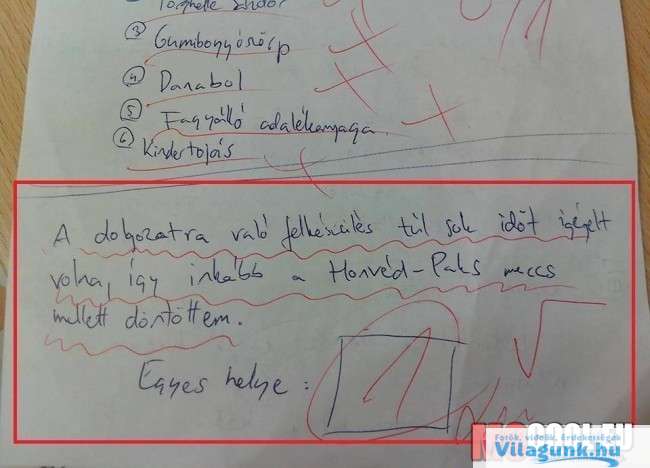 Torghelle Sándor
③ Gumibogyószörp
④ Danabol
⑤ Fagyálló adalékanyaga
⑥ Kindertojás
A dolgozatra való felkészülés túl sok időt igényelt
volna, így inkább a Honvéd-Paks meccs
mellett döntöttem.
Egyes helye:
1
Fotók, videók, Érdekességek
Világunk.hu